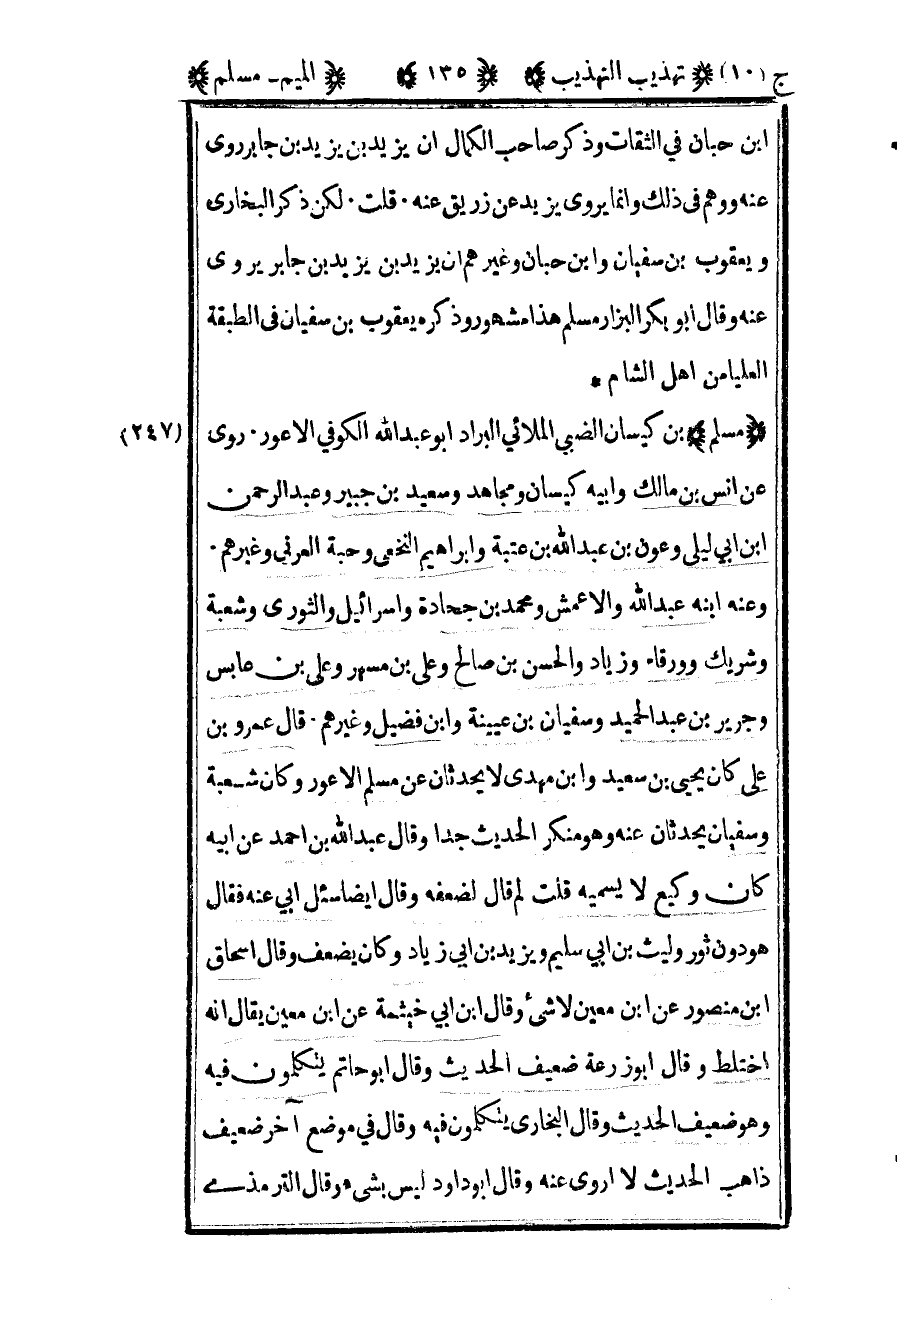 ج (١٠) ﴿تهذيب التهذيب﴾ ﴿١٣٥﴾ ﴿الميم - مسلم﴾
ابن حبان في الثقات وذكر صاحب الكمال ان يزيد بن يزيد بن جابر روى
عنه ووهم في ذلك وانما يروى يزيد عن زريق عنه٠ قلت٠ لكن ذكر البخارى
ويعقوب بن سفيان وابن حبان وغيرهم ان يزيد بن يزيد بن جابر يروى
عنه وقال ابو بكر البزار مسلم هذا مشهور وذكره يعقوب بن سفيان فى الطبقة
العليا من اهل الشام *
(٢٤٧) ﴿مسلم﴾ بن كيسان الضبي الملائي البراد ابو عبد الله الكوفي الاعور٠ روى
عن انس بن مالك وابيه كيسان ومجاهد وسعيد بن جبير وعبد الرحمن
ابن ابي ليلى وعون بن عبد الله بن عتبة وابراهيم النخعى وحبة العرني وغيرهم٠
وعنه ابنه عبد الله والاعمش ومحمد بن جحادة واسرائيل والثورى وشعبة
وشريك وورقاء وزياد والحسن بن صالح وعلى بن مسهر وعلى بن عابس
وجرير بن عبد الحميد وسفيان بن عيينة وابن فضيل وغيرهم٠ قال عمرو بن
على كان يحيى بن سعيد وابن مهدى لا يحدثان عن مسلم الاعور وكان شعبة
وسفيان يحدثان عنه وهو منكر الحديث جدا وقال عبد الله بن احمد عن ابيه
كان وكيع لا يسميه قلت لم قال لضعفه وقال ايضا سئل ابي عنه فقال
هو دون ثور وليث بن ابي سليم ويزيد بن ابى زياد وكان يضعف وقال اسحاق
ابن منصور عن ابن معين لا شئ وقال ابن ابي خيثمة عن ابن معين يقال انه
اختلط وقال ابو زرعة ضعيف الحديث وقال ابو حاتم يتكلمون فيه
وهو ضعيف الحديث وقال البخارى يتكلمون فيه وقال في موضع آخر ضعيف
ذاهب الحديث لا اروى عنه وقال ابو داود ليس بشىء وقال الترمذى